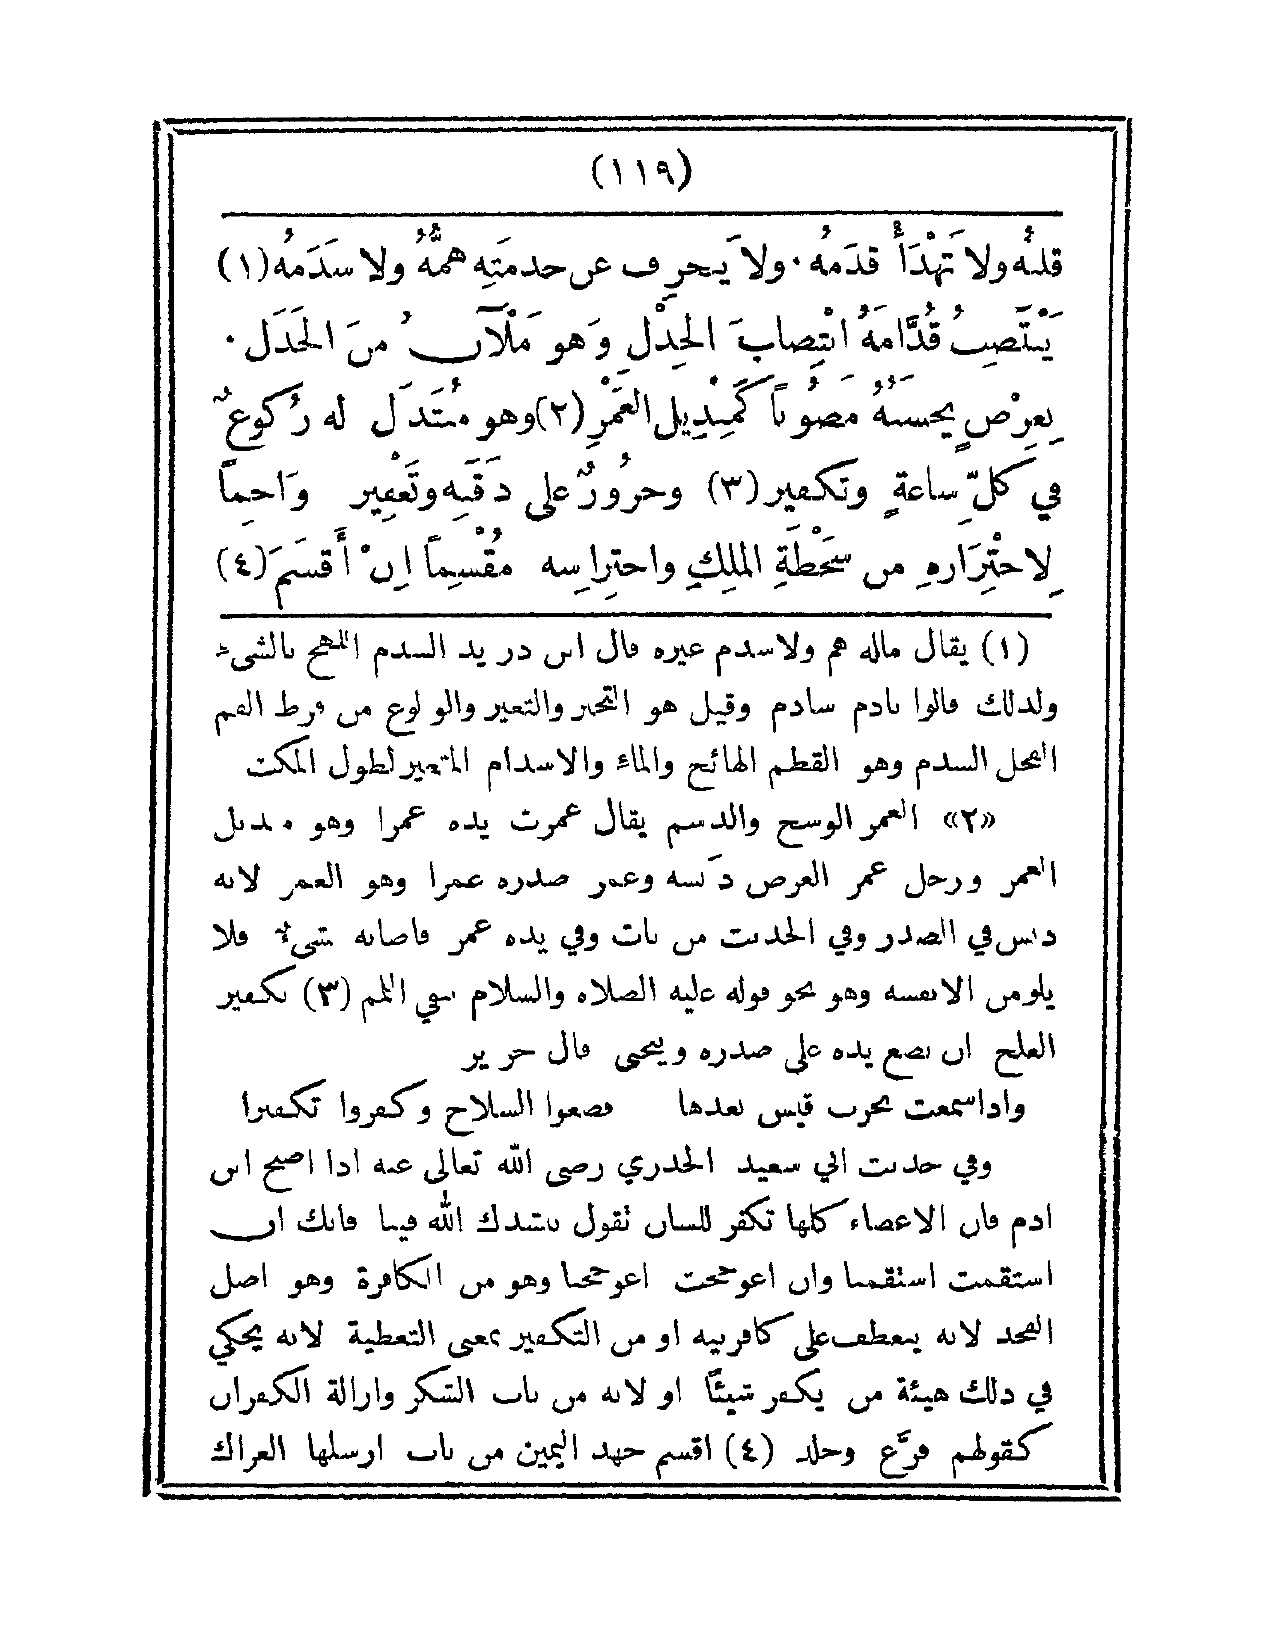 (١١٩)
قلبُهُ ولا تَهْدَأُ قدَمُهُ · ولا يَنحرِفُ عن خدمتِهِ همُّهُ ولا سدَمُهُ (١)
يَنْتَصِبُ قُدَّامَهُ انْتِصابَ الجِذْلِ وَهو مَلْآنُ منَ الجَذَلِ ·
بِعِرْضٍ يحسَبُهُ مصُوناً كَمِنْدِيلِ الغَمْرِ (٢) وهو مُبْتَذَلٌ له رُكوعٌ
في كلِّ ساعةٍ وتكفير (٣) وخرُورٌ على ذقَنِهِ وتَعْفِير واجماً
لِاحْتِرَازِهِ من سَخْطَةِ الملِكِ واحتِرَاسِه مُقْسِماً إِنْ أَقسَمَ (٤)
(١) يقال ماله هم ولا سدم غيره قال ابن دريد السدم اللهج بالشيء
ولذلك قالوا نادم سادم وقيل هو التحير والتغير والولوع من فرط الغم
الفحل السدم وهو القطم الهائج والماء والاسدام المتغير لطول المكث
«٢» الغمر الوسخ والدسم يقال غمرت يده غمرا وهو منديل
الغمر ورجل غمر العرض دنسه وغمر صدره غمرا وهو الغمر لانه
دنس في الصدر وفي الحديث من بات وفي يده غمر فاصابه شيء فلا
يلومن الا نفسه وهو نحو قوله عليه الصلاه والسلام ينفي اللمم (٣) تكفير
العلج ان يضع يده على صدره وينحني قال جرير
واذا سمعت بحرب قيس بعدها فضعوا السلاح وكفروا تكفيرا
وفي حديث ابي سعيد الخدري رضى الله تعالى عنه اذا اصبح ابن
ادم فان الاعضاء كلها تكفر للسان تقول ننشدك الله فينا فانك ان
استقمت استقمنا وان اعوججت اعوججنا وهو من الكافرة وهو اصل
الفخذ لانه ينعطف على كافرتيه او من التكفير بمعنى التغطية لانه يحكي
في ذلك هيئة من يكفر شيئًا او لانه من باب الشكر وازالة الكفران
كقولهم فرَّع وجلد (٤) اقسم جهد اليمين من باب ارسلها العراك